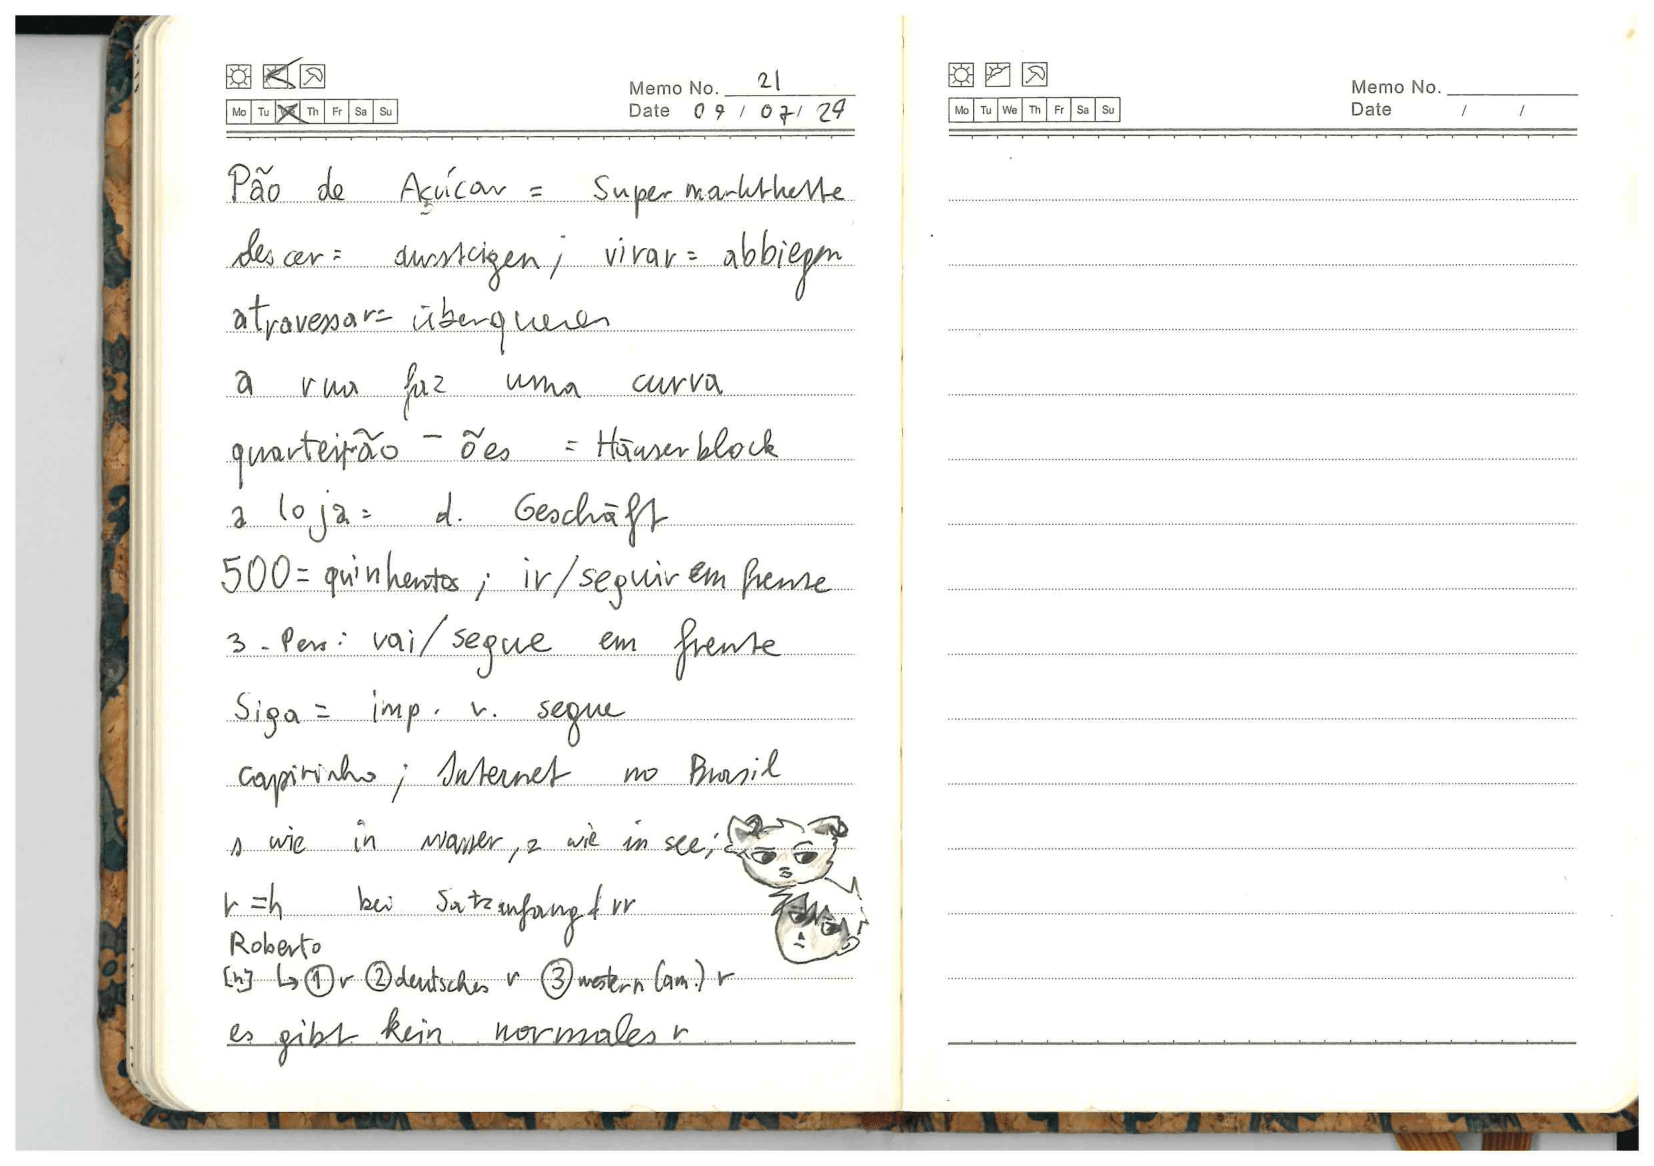 Memo No. 21
Mo Tu We Th Fr Sa Su
Date 09 / 07 / 29
Pão de Açúcar = Supermarktkette
descer = aussteigen; virar = abbiegen
atravessar = überqueren
a rua faz uma curva
quarteirão - ões = Häuserblock
a loja = d. Geschäft
500 = quinhentos; ir/seguir em frente
3. Pers: vai/segue em frente
Siga = imp. v. segue
capirinha; Internet no Brasil
s wie in wasser, z wie in see;
r = h bei Satzanfang & rr
Roberto
[h] ↳ ① r ② deutsches r ③ western (am.) r
es gibt kein normales r
Memo No.
Mo Tu We Th Fr Sa Su
Date / /